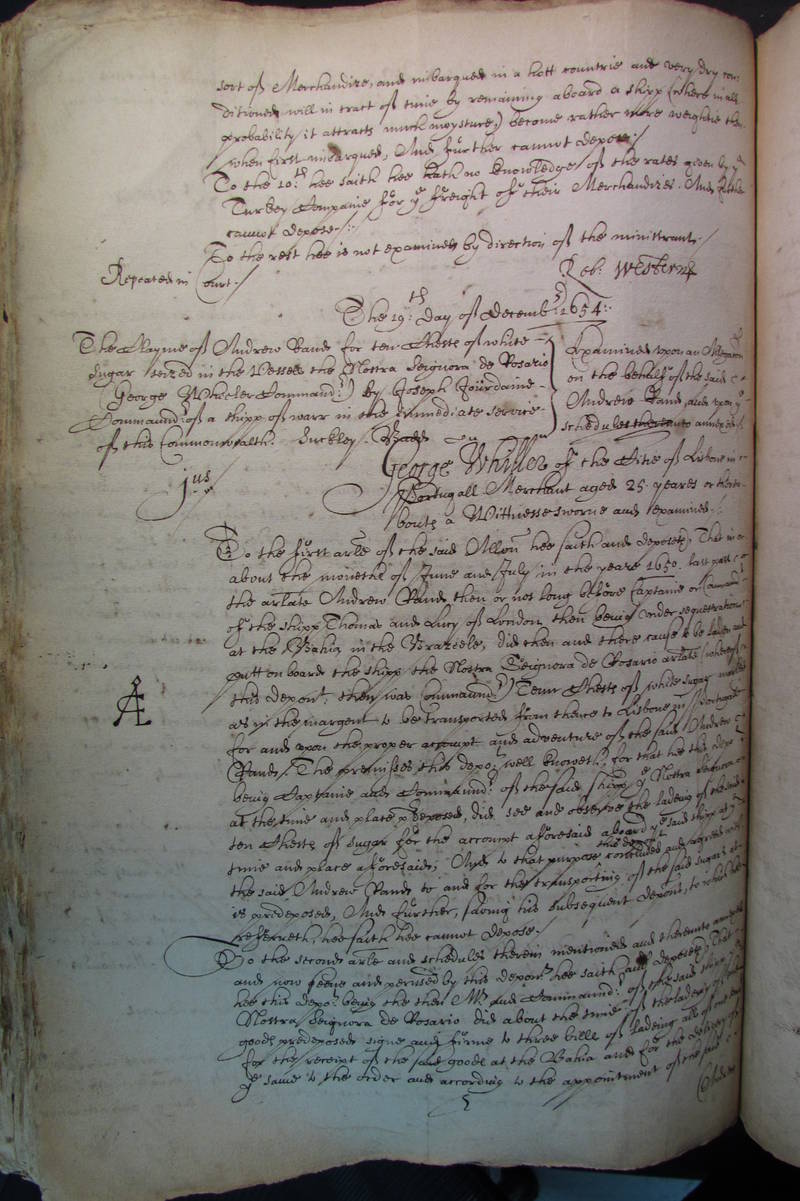 sort of Merchandize, and imbarqued in a hott countrie and very dry con:
ditioned will in tract of time by remaining aboard a shipp (where in all
probability it attracts much moysture,) become rather more weightie then
when first imbarqued, And further cannot depose./
To the 10:th hee saith hee hath no knowledge of the rates given by ye
Turkey Companie for ye freight of their Merchandizes. And further
cannot depose./
To the rest hee is not examined by direction of the ministrant./
Repeated in Court./
Rob: Westerne
The 19:th Day of December 1654:
The Clayme of Andrew Rand for ten Chests of white
Sugar seized in the Vessell the Nostra Seignora de Rosario
(George Wheeler Commander) by Joseph Jourdaine
Commaunder of a shipp of warr in the immediate service
of this Commonwealth. Suckley.
Examined upon an Allegation
on the behalfe of the said
Andrew Rand, and upon ye
schedules thereunto annexed
jus
George Whiller of the Citie of Lisbone in
Portugall Merchant aged 25 yeares or there:
bouts a Wittnesse sworne and examined./
To the first arle of the said Allon hee saith and deposeth, That in or
about the moneths of June and July in the yeare 1650. last past
the arlate Andrew Rand then or not long before Captaine or Commander
of the shipp Thomas and Lucy of London then being under sequestration
at the Bahia in the Brazeele, did then and there cause to be laden and
putt on board the shipp the Nostra Seignora de Rosario arlate (whereof
this deponent then was Commaunder) Tenn Chests of white sugar marked
as in the margent to be transported from thence to Lisbone in Portugall
for and upon the proper accompt and adventure of the said Andrew
Rand. The premisses this depot well knoweth, for that hee this depot
being Captaine and Commaunder of the said shipp ye Nostra Seignora
at the time and place predeposed, did see and observe the lading of the said
ten Chests of Sugar for the accompt aforesaid aboard ye said shipp at ye
time and place aforesaid, And to that purpose this deponent concluded and agreed with
the said Andrew Rand to and for the transporting of the said sugars as
is predeposed, And further, saving his subsequent deposit, to which hee
referreth, hee saith hee cannot depose./
To the second arle and schedules therein mentioned and thereunto annexed
and now seene and perused by this deponent hee saith and deposeth, That
hee this depot being the then Mr and Commaunder of the said shipp
Nostra Seignora de Rosario did about the time of the lading of the
goods predeposed signe and firme to three bills of lading all of one tenor
for the receipt of the said goods at the Bahia and for the delivery of
ye same to the order and according to the appointment of the said
Andrew